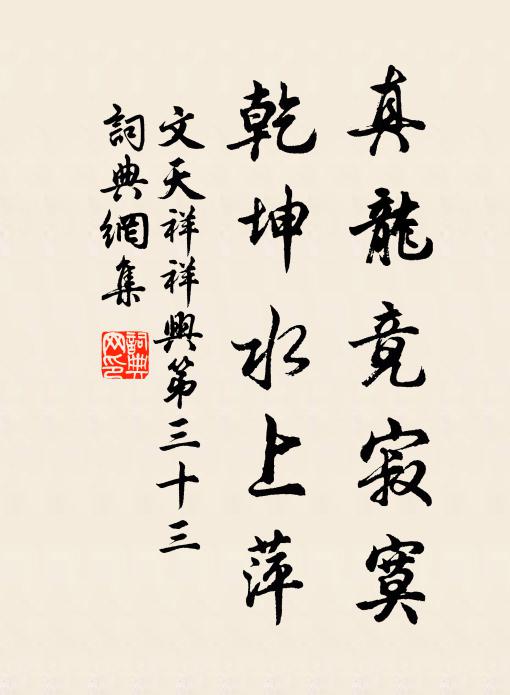 真龍竟寂寞
乾坤水上萍
文天祥祥興第三十三
詞典網集
詞典網印